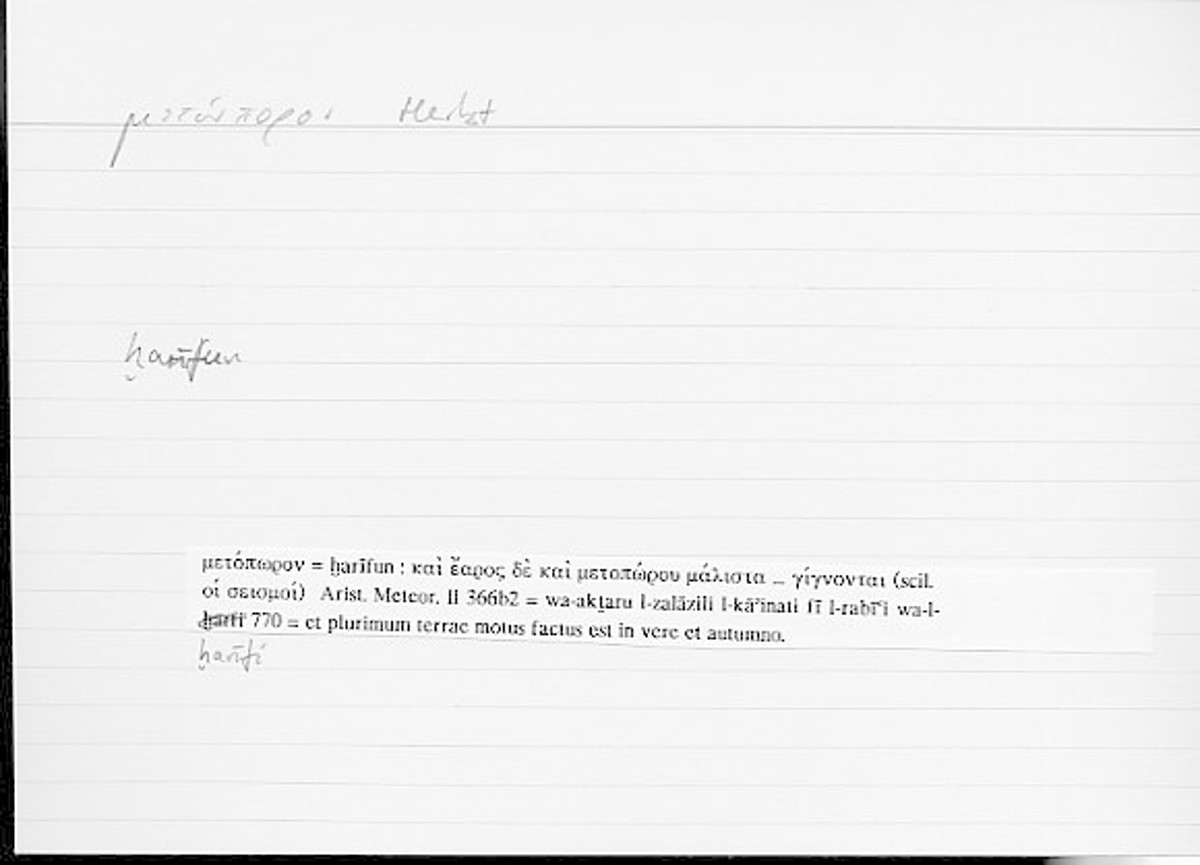 μετόπωρον Herbst
ḫarīfun
μετόπωρον = ḫarīfun : καὶ ἔαρος δὲ καὶ μετοπώρου μάλιστα _ γίγνονται (scil.
οἱ σεισμοί) Arist. Meteor. II 366b2 = wa-akṯaru l-zalāzili l-kāʾinati fī l-rabīʿi wa-l-
770 = et plurimum terrae motus factus est in vere et autumno.
ḫarīfi